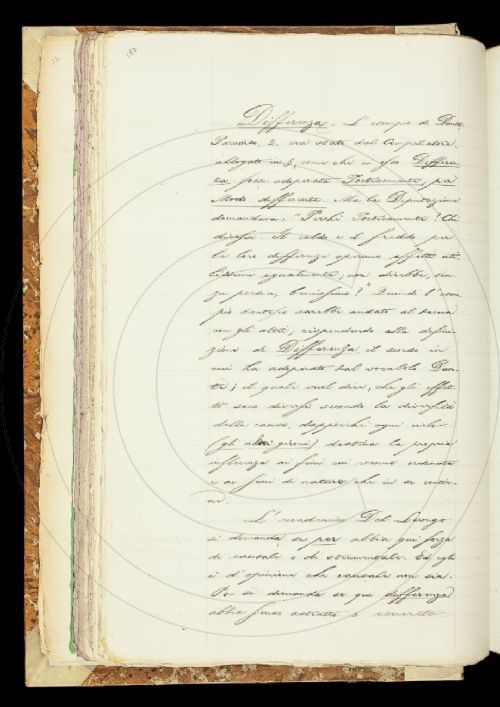 180
Differenza. L'esempio di Dante
Paradiso, 2, era stato dal Compilatore
allogato in §, come che in esso Differen
za fosse adoperato Poeticamente, per
Modo differente. Ma la Deputazione
domandava: "Perchè Poeticamente? Chi
dicesse. Il caldo e il freddo per
la loro differenza operano effetti
egualmente; non direbbe, sen
za poesia, benissimo?" Quando l'esem
pio dantesco sarebbe andato al tema
con gli altri, rispondendo alla defini
zione di Differenza il senso in
cui ha adoperato tal vocabolo Dan
te; il quale vuol dire, che gli effet
ti sono diversi secondo la diversità
della causa, dappoichè ogni cielo
(gli altri gironi) destina la propria
influenza ai fini cui venne ordinata
e ai semi di natura che in sè contie
ne.
L'accademico Del Lungo
si domanda se per abbia qui forza
di causale o di strumentale. Ed egli
è d'opinione che causale non sia.
Poi si domanda se qui differenza
abbia senso astratto o concreto.